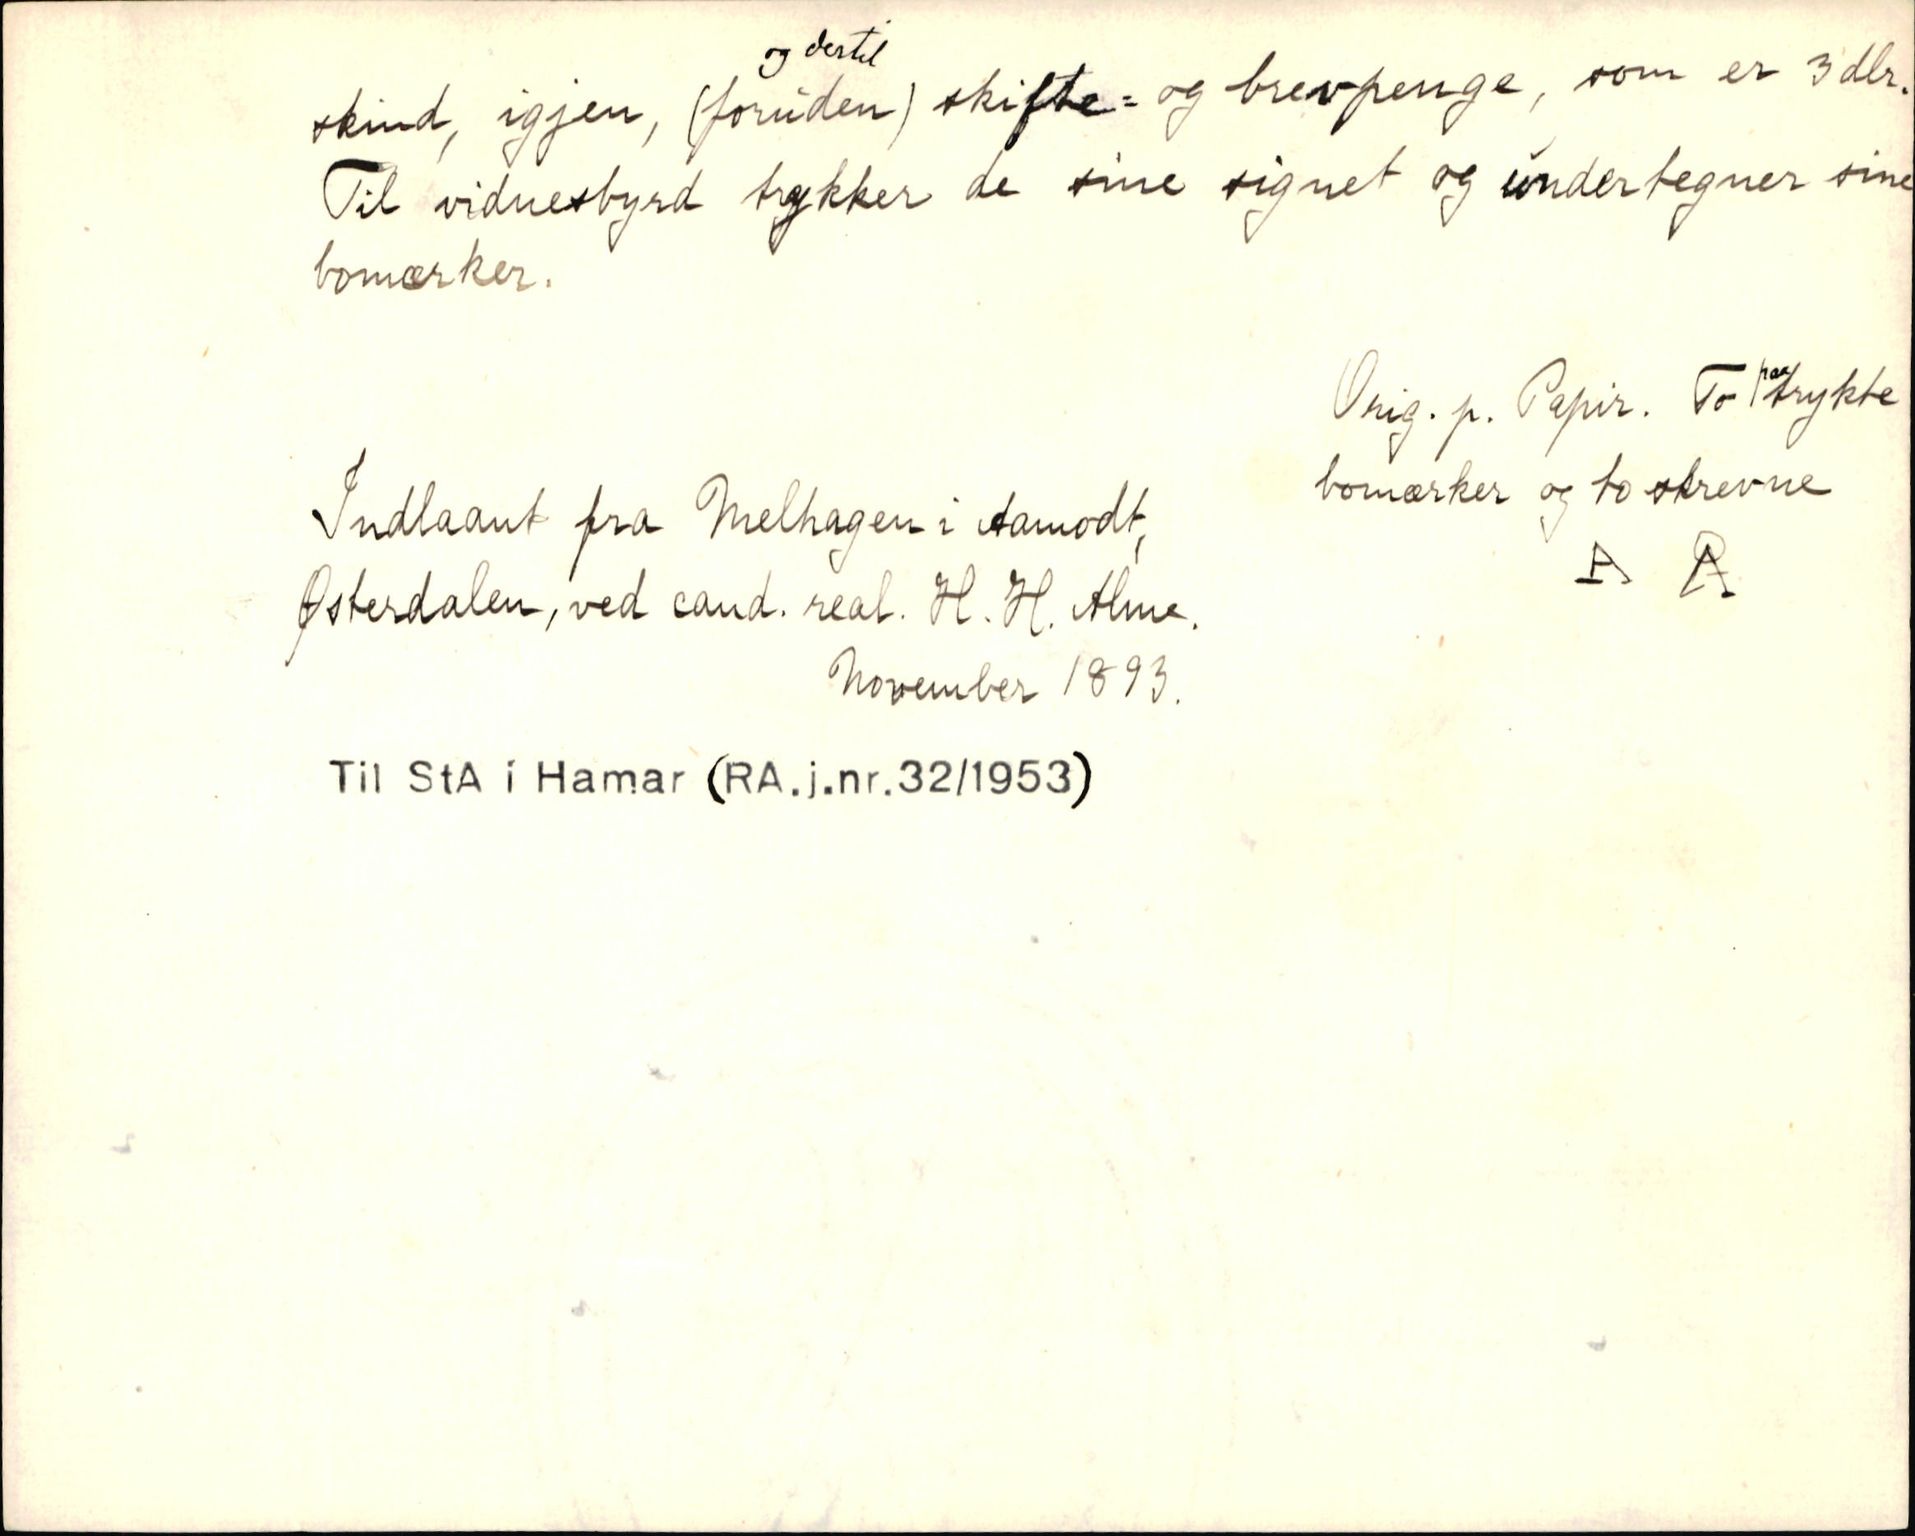 og dertil
skind, igjen, (foruden) skifte= og brevpenge, som er 3 dlr.
Til vidnesbyrd trykker de sine signet og undertegner sine
bomærker.
Orig. p. Papir. To paatrykte
bomærker og to skrevne
Indlaant fra Melhagen i Aamodt,
Østerdalen, ved cand. real. H. H. Alme.
November 1893.
Til StA i Hamar (RA.j.nr.32/1953)